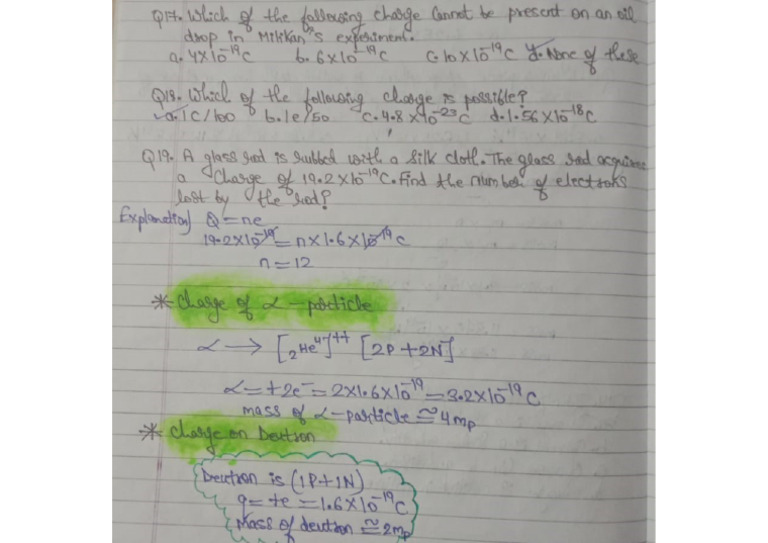 Q17. Which of the following charge Cannot be present on an oil
drop in Milikan's experiment.
a. 4×10⁻¹⁹C b. 6×10⁻¹⁹C C. 10×10⁻¹⁹C d. None of these
Q18. Which of the following charge is possible?
a. 1C/100 b. 1e/50 C. 4.8×10⁻²³C d. 1.56×10⁻¹⁸C
Q19. A glass rod is rubbed with a silk cloth. The glass rod acquires
a charge of 19.2×10⁻¹⁹C. Find the number of electrons
lost by the rod?
Explanation) Q=ne
19.2×10⁻¹⁹=n×1.6×10⁻¹⁹C
n=12
* Charge of α-particle
α → [₂He⁴]⁺⁺ [2P+2N]
α=+2e⁻=2×1.6×10⁻¹⁹=3.2×10⁻¹⁹C
mass of α-particle ≅ 4mp
* Charge on Deutron
Deutron is (1P+1N)
q=+e=1.6×10⁻¹⁹C
Mass of deutron ≅ 2mp